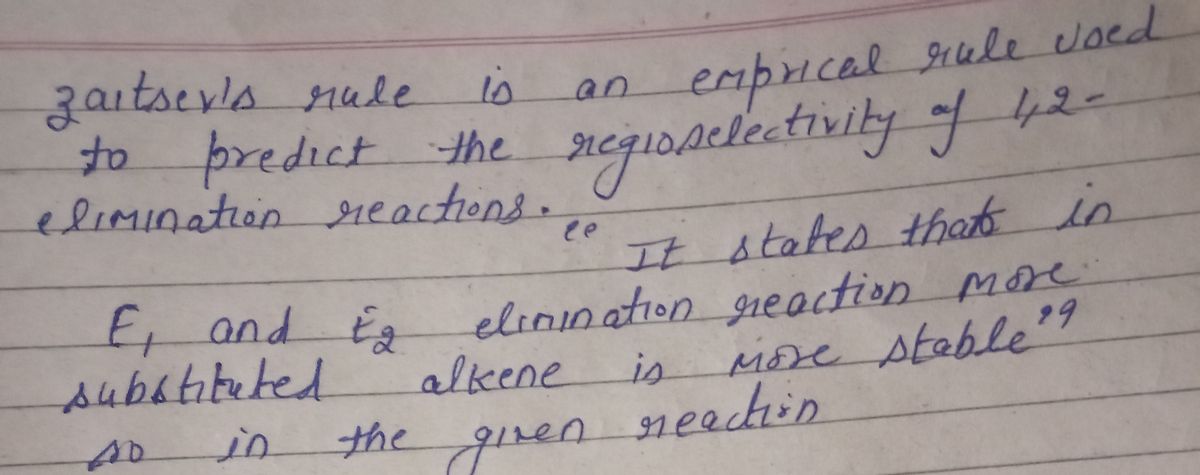 Zaitsev's rule is an emprical rule used
to predict the regioselectivity of 1,2-
elimination reactions.
"It states that in
E1 and E2 elimination reaction more
substituted alkene is more stable"
so in the given reaction